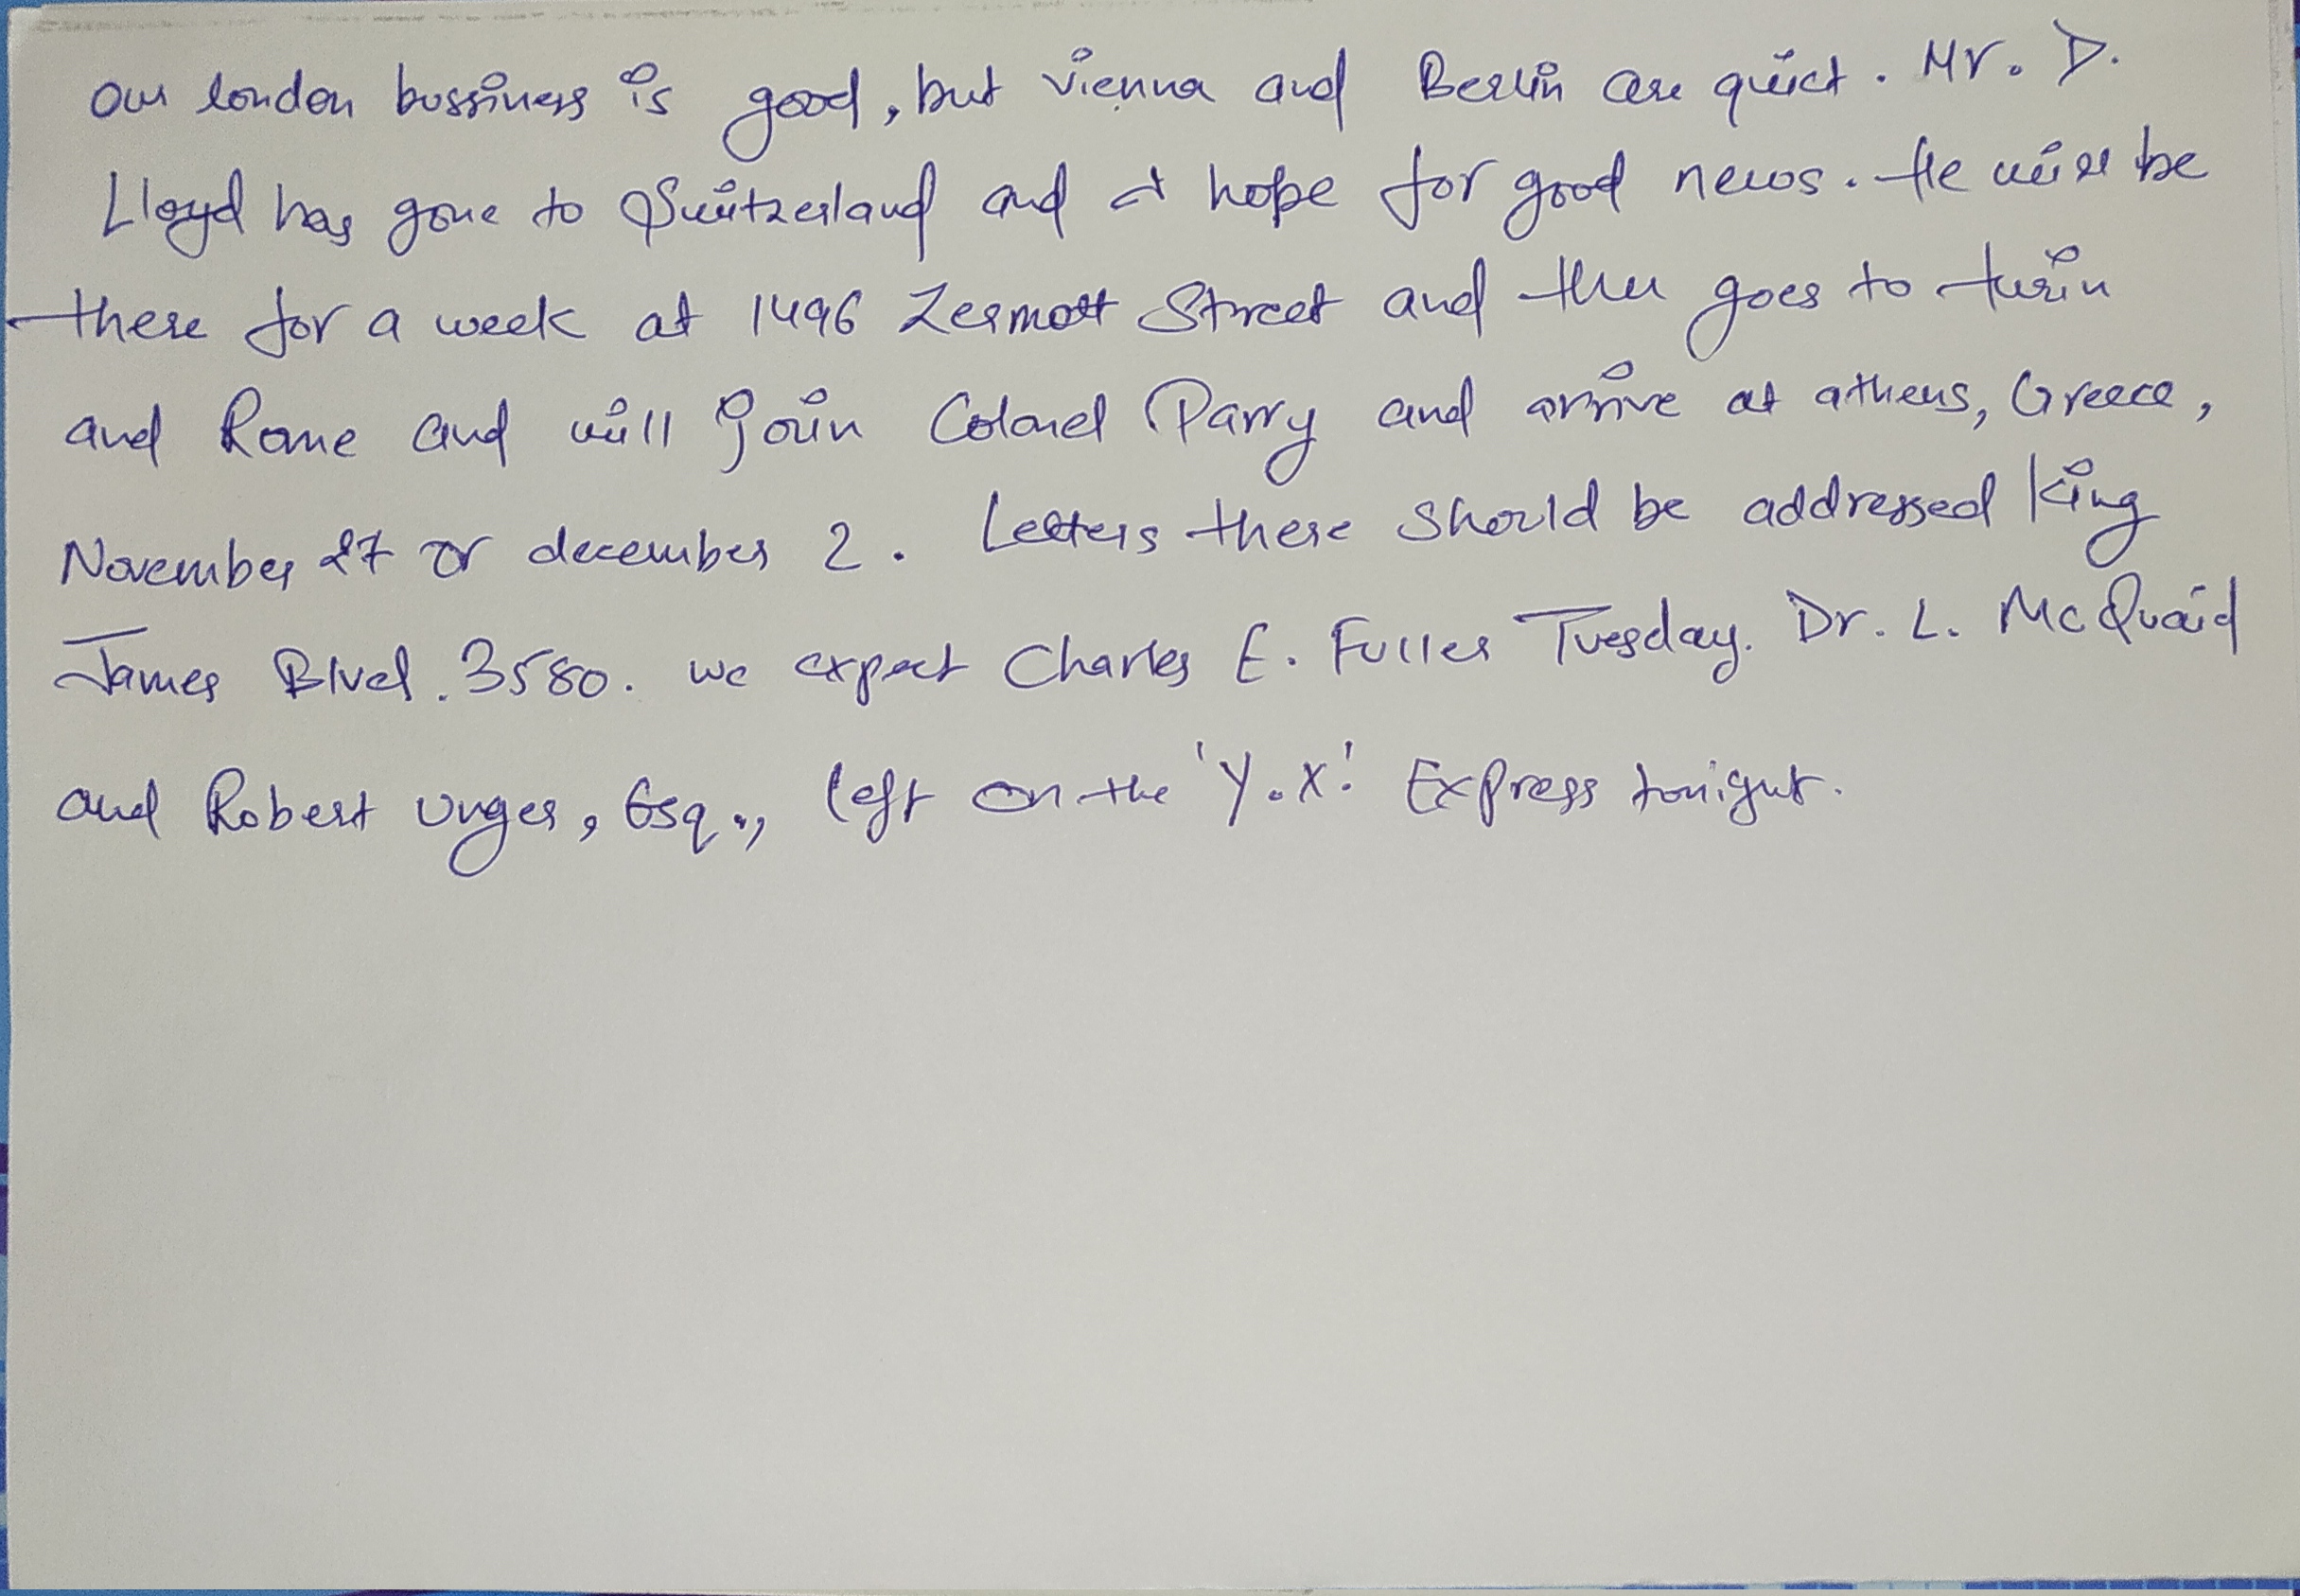 our london bussiness is good, but vienna and Berlin are quiet. Mr. D.
Lloyd has gone to Switzerland and I hope for good news. He will be
there for a week at 1496 Zermott Street and then goes to turin
and Rome and will join Colonel Parry and arrive at athens, Greece,
November 27 or december 2. Letters there should be addressed King
James Blvd. 3580. we expect Charles E. Fuller Tuesday. Dr. L. McQuaid
and Robert Unger, Esq., left on the 'Y.X.' Express tonight.